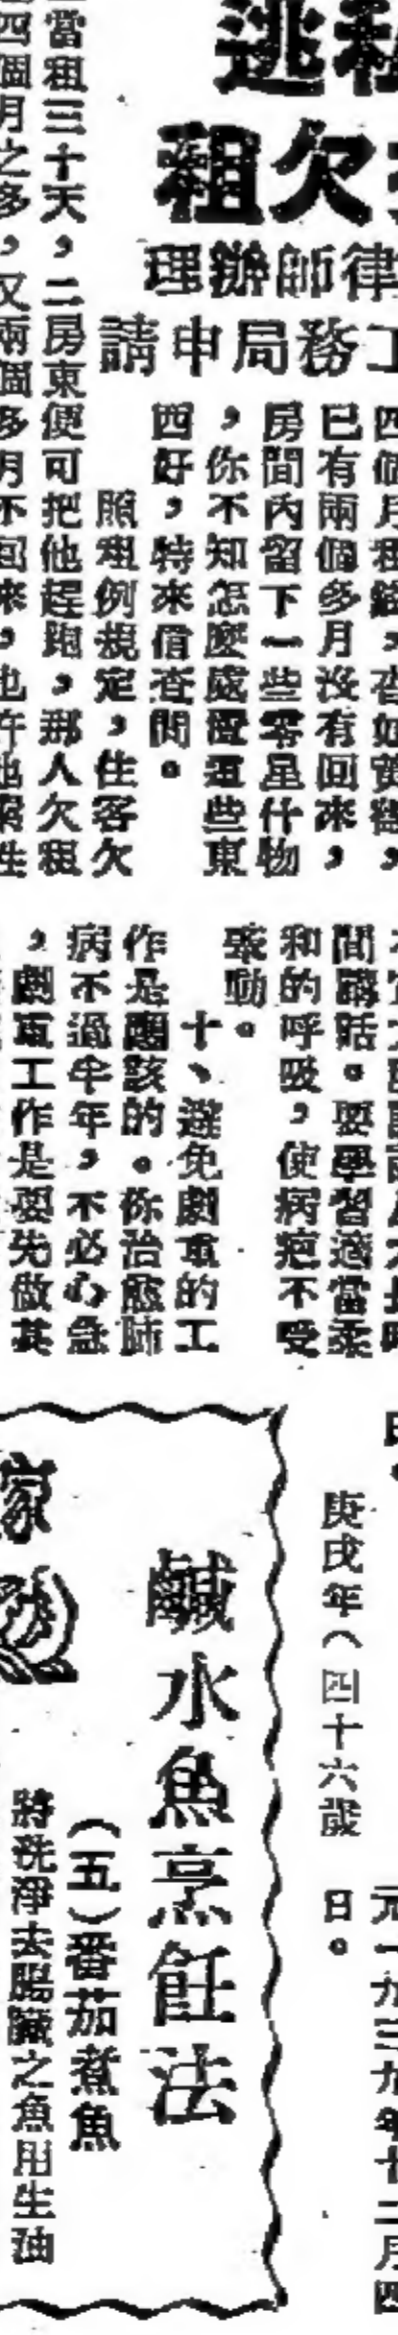 逃
欠租
律師辦理
工務局申請
四個月租
已有兩個多月沒有回來，
房間內留下一些零星什物
，你不知怎麼處置這些東
西好，特來信查問。
照租例規定，住客欠
當租三十天，二房東便可把他趕跑，那人欠租
四個月之多，又兩個多月不回來，也許他
間講話。要學習適當柔
和的呼吸，使病疤不受
震動。
十、避免劇重的工
作是應該的。你治愈肺
病不過半年，不必心急
，劇重工作是要先做其
庚戌年（四十六歲
元一九三九年十二月四
日。
鹹水魚烹飪法
（五）番茄煮魚
將洗淨去腸臟之魚用生油